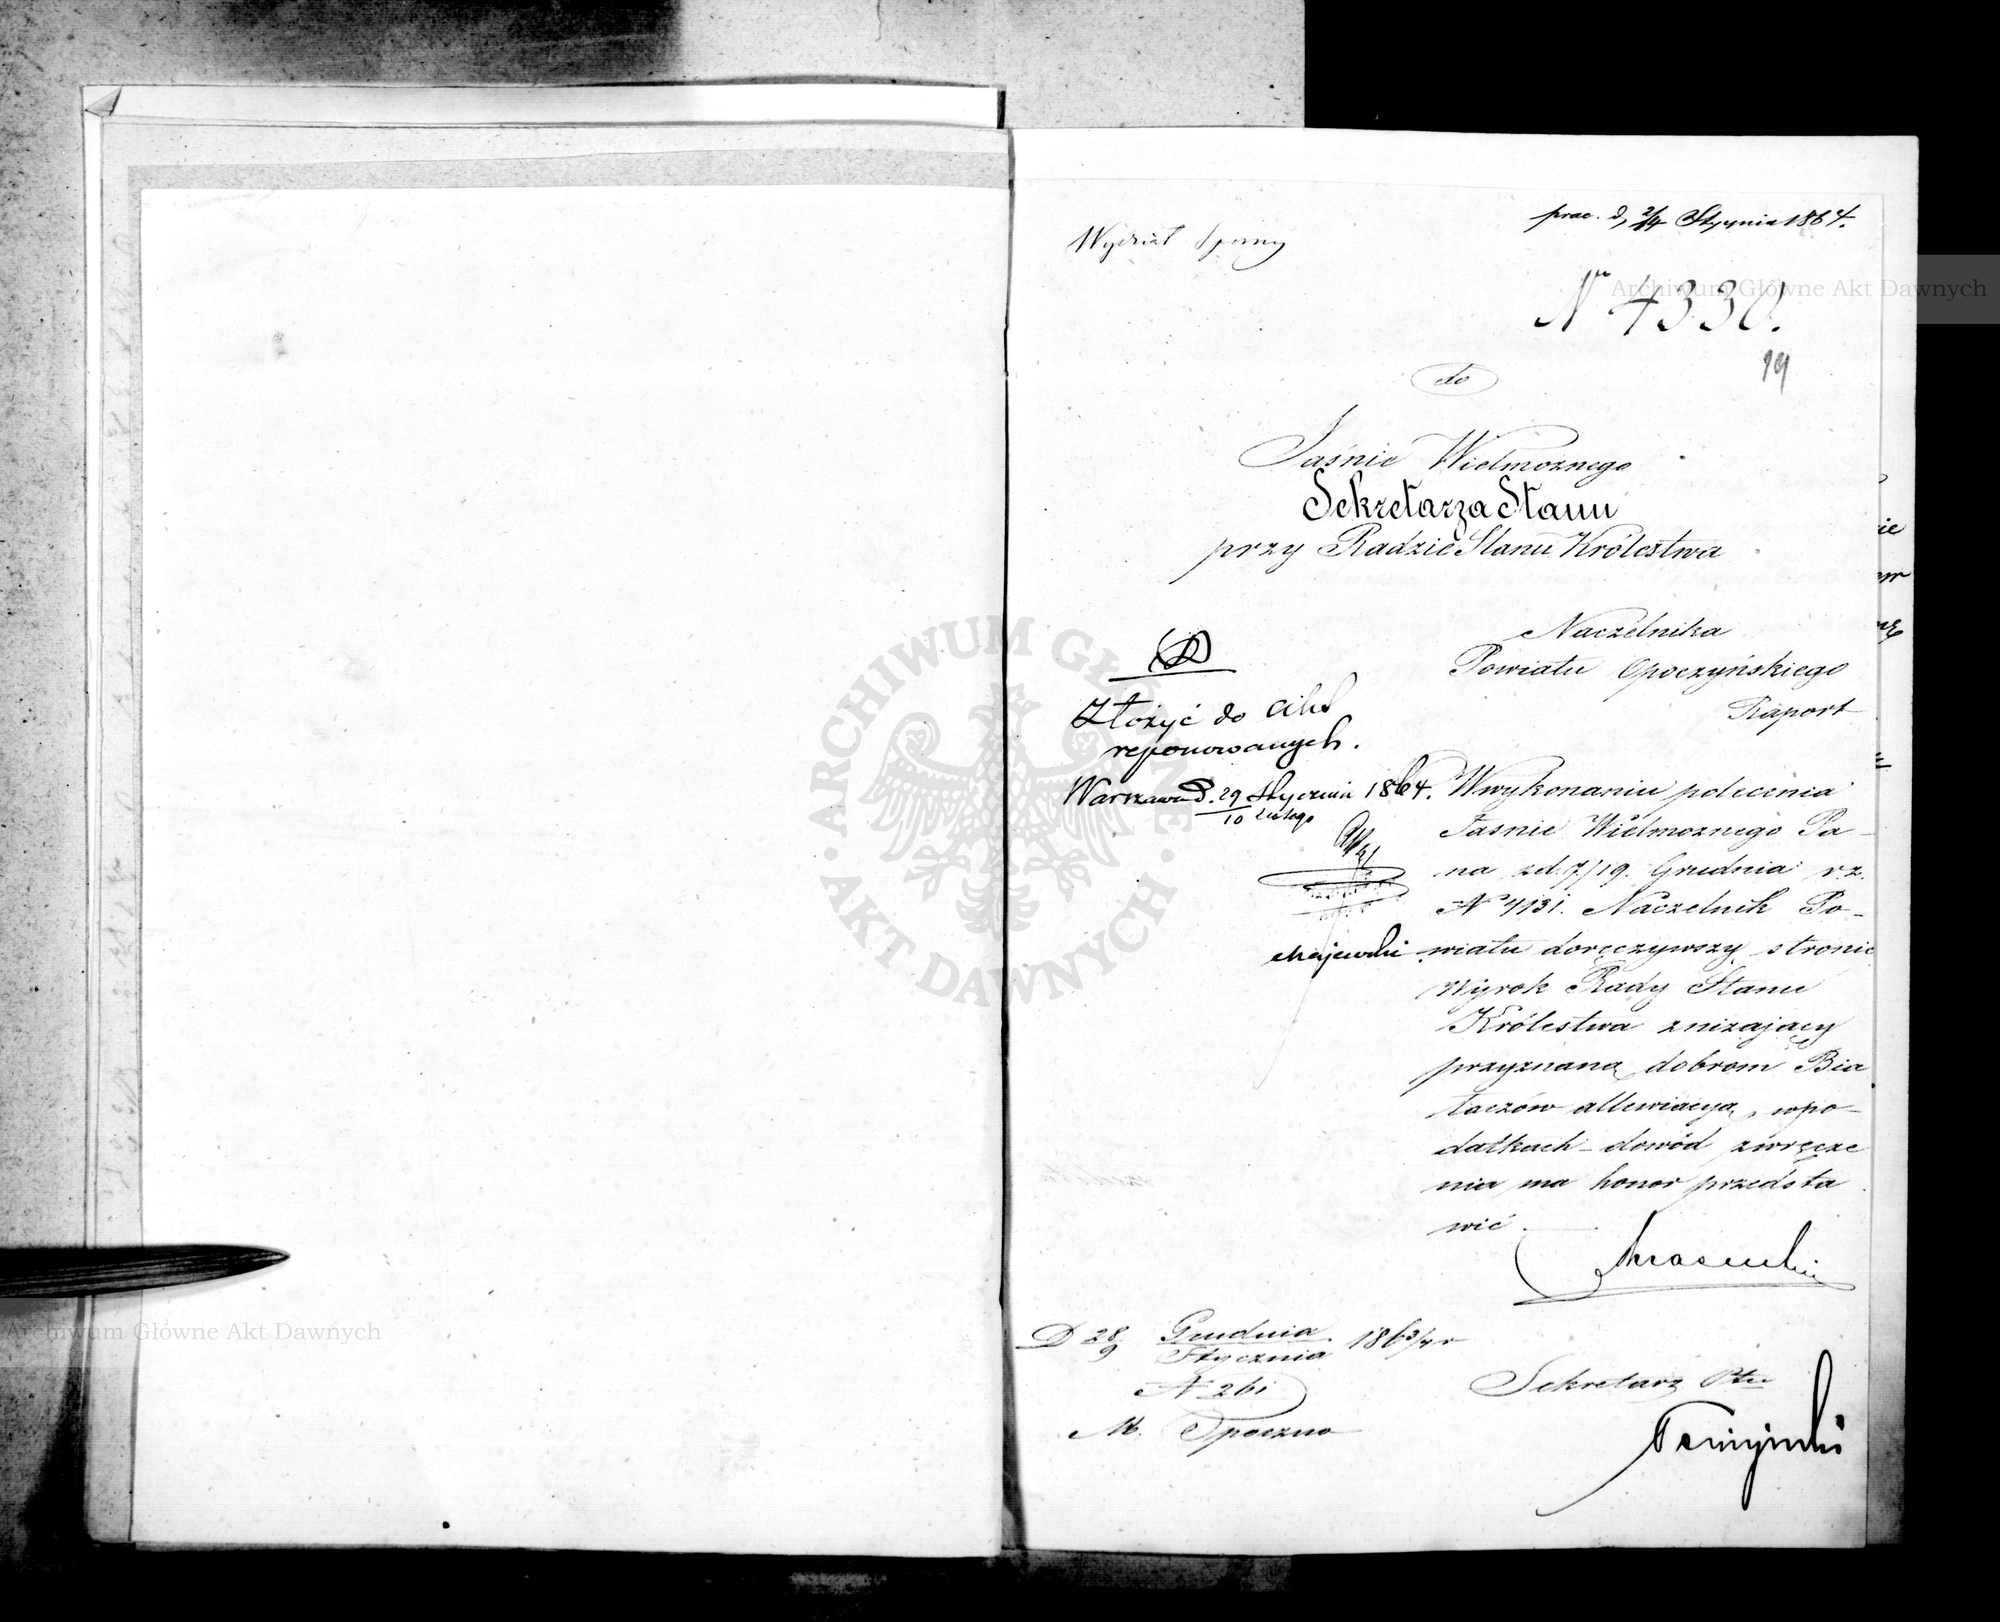 prae. d. 2/14 Stycznia 1864.
Wydział Sporny
Nr 4330.
19
do
Jaśnie Wielmożnego
Sekretarza Stanu
przy Radzie Stanu Królestwa
Naczelnika
Powiatu Opoczyńskiego
Raport
Złożyć do akt
reponowanych.
Warszawa d. 29 Stycznia 1864.
10 Lutego
Majewski
W wykonaniu polecenia
Jasnie Wielmoznego Pa-
na z d. 7/19. Grudnia r. z.
N 4131. Naczelnik Po-
wiatu doręczywszy stronie
Wyrok Rady Stanu
Królestwa zniżający
przyznaną dobrom Bia
łaczów allewiacyą, w po-
datkach - dowód zwręcze
nia ma honor przedsta
wić.
D 28/9 Grudnia/Stycznia 1863/4 r
N 261
M. Opoczno
Sekretarz Ptu
Archiwum Główne Akt Dawnych
ARCHIWUM GŁÓWNE · AKT DAWNYCH ·
Archiwum Główne Akt Dawnych